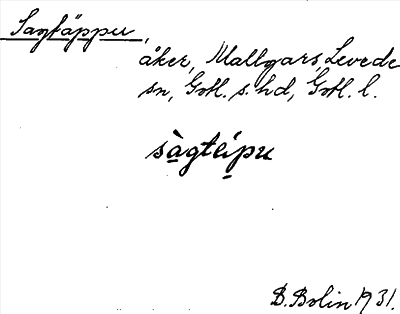 Sagtäppu,
åker, Mallgars, Levede
sn, Gotl. s. hd, Gotl. l.
sàgtéipu
B. Bolin 1931.